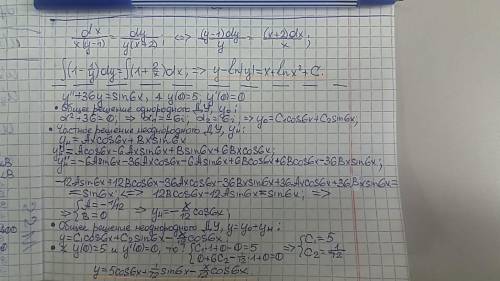 dx/x(y-1) = dy/y(x+2); <=> (y-1)dy/y = (x+2)dx/x;
∫(1-1/y)dy=∫(1+2/x)dx, => y-ln|y|=x+lnx²+C.
y''+36y=sin6x, y(0)=5, y'(0)=0
• Общее решение однородного ДУ, y₀:
α²+36=0, => α₁=6i, α₂=6i, => y₀=C₁cos6x+C₂sin6x;
• Частное решение неоднородного ДУ, yн:
yн=Axcos6x+Bxsin6x
y'н=Acos6x-6Axsin6x+Bsin6x+6Bxcos6x;
y''н=-6Asin6x-36Axcos6x-6Asin6x+6Bcos6x+6Bcos6x-36Bxsin6x;
-12Asin6x+12Bcos6x-36Axcos6x-36Bxsin6x+36Axcos6x+36Bxsin6x=
=sin6x; <=> 12Bcos6x-12Asin6x=sin6x; =>
=> {A=-1/12 B=0 => yн=-x/12 cos6x;
• Общее решение неоднородного ДУ, y=y₀+yн:
y=C₁cos6x+C₂sin6x-x/12 cos6x.
• К y(0)=5 и y'(0)=0, то {C₁+0-0=5 0+6C₂-1/12·1+0=0 => {C₁=5 C₂=1/72
y=5cos6x+1/72 sin6x-x/12 cos6x.